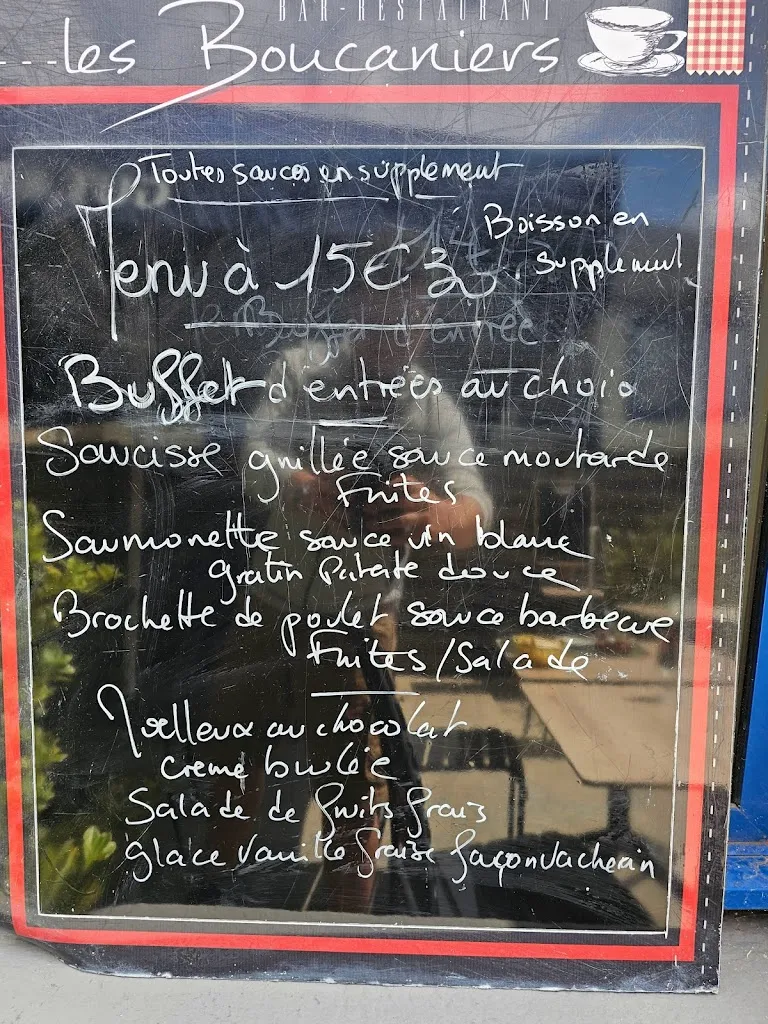 BAR-RESTAURANT
les Boucaniers
Toutes sauces en supplement
Boisson en
supplement
Menu à 15€
Buffet d'entrées au choix
Saucisse grillée sauce moutarde
Frites
Saumonette sauce vin blanc
gratin Patate douce
Brochette de poulet sauce barbecue
Frites/Salade
Moelleux au chocolat
creme brulée
Salade de fruits frais
glace vanille fraise façon vacherin